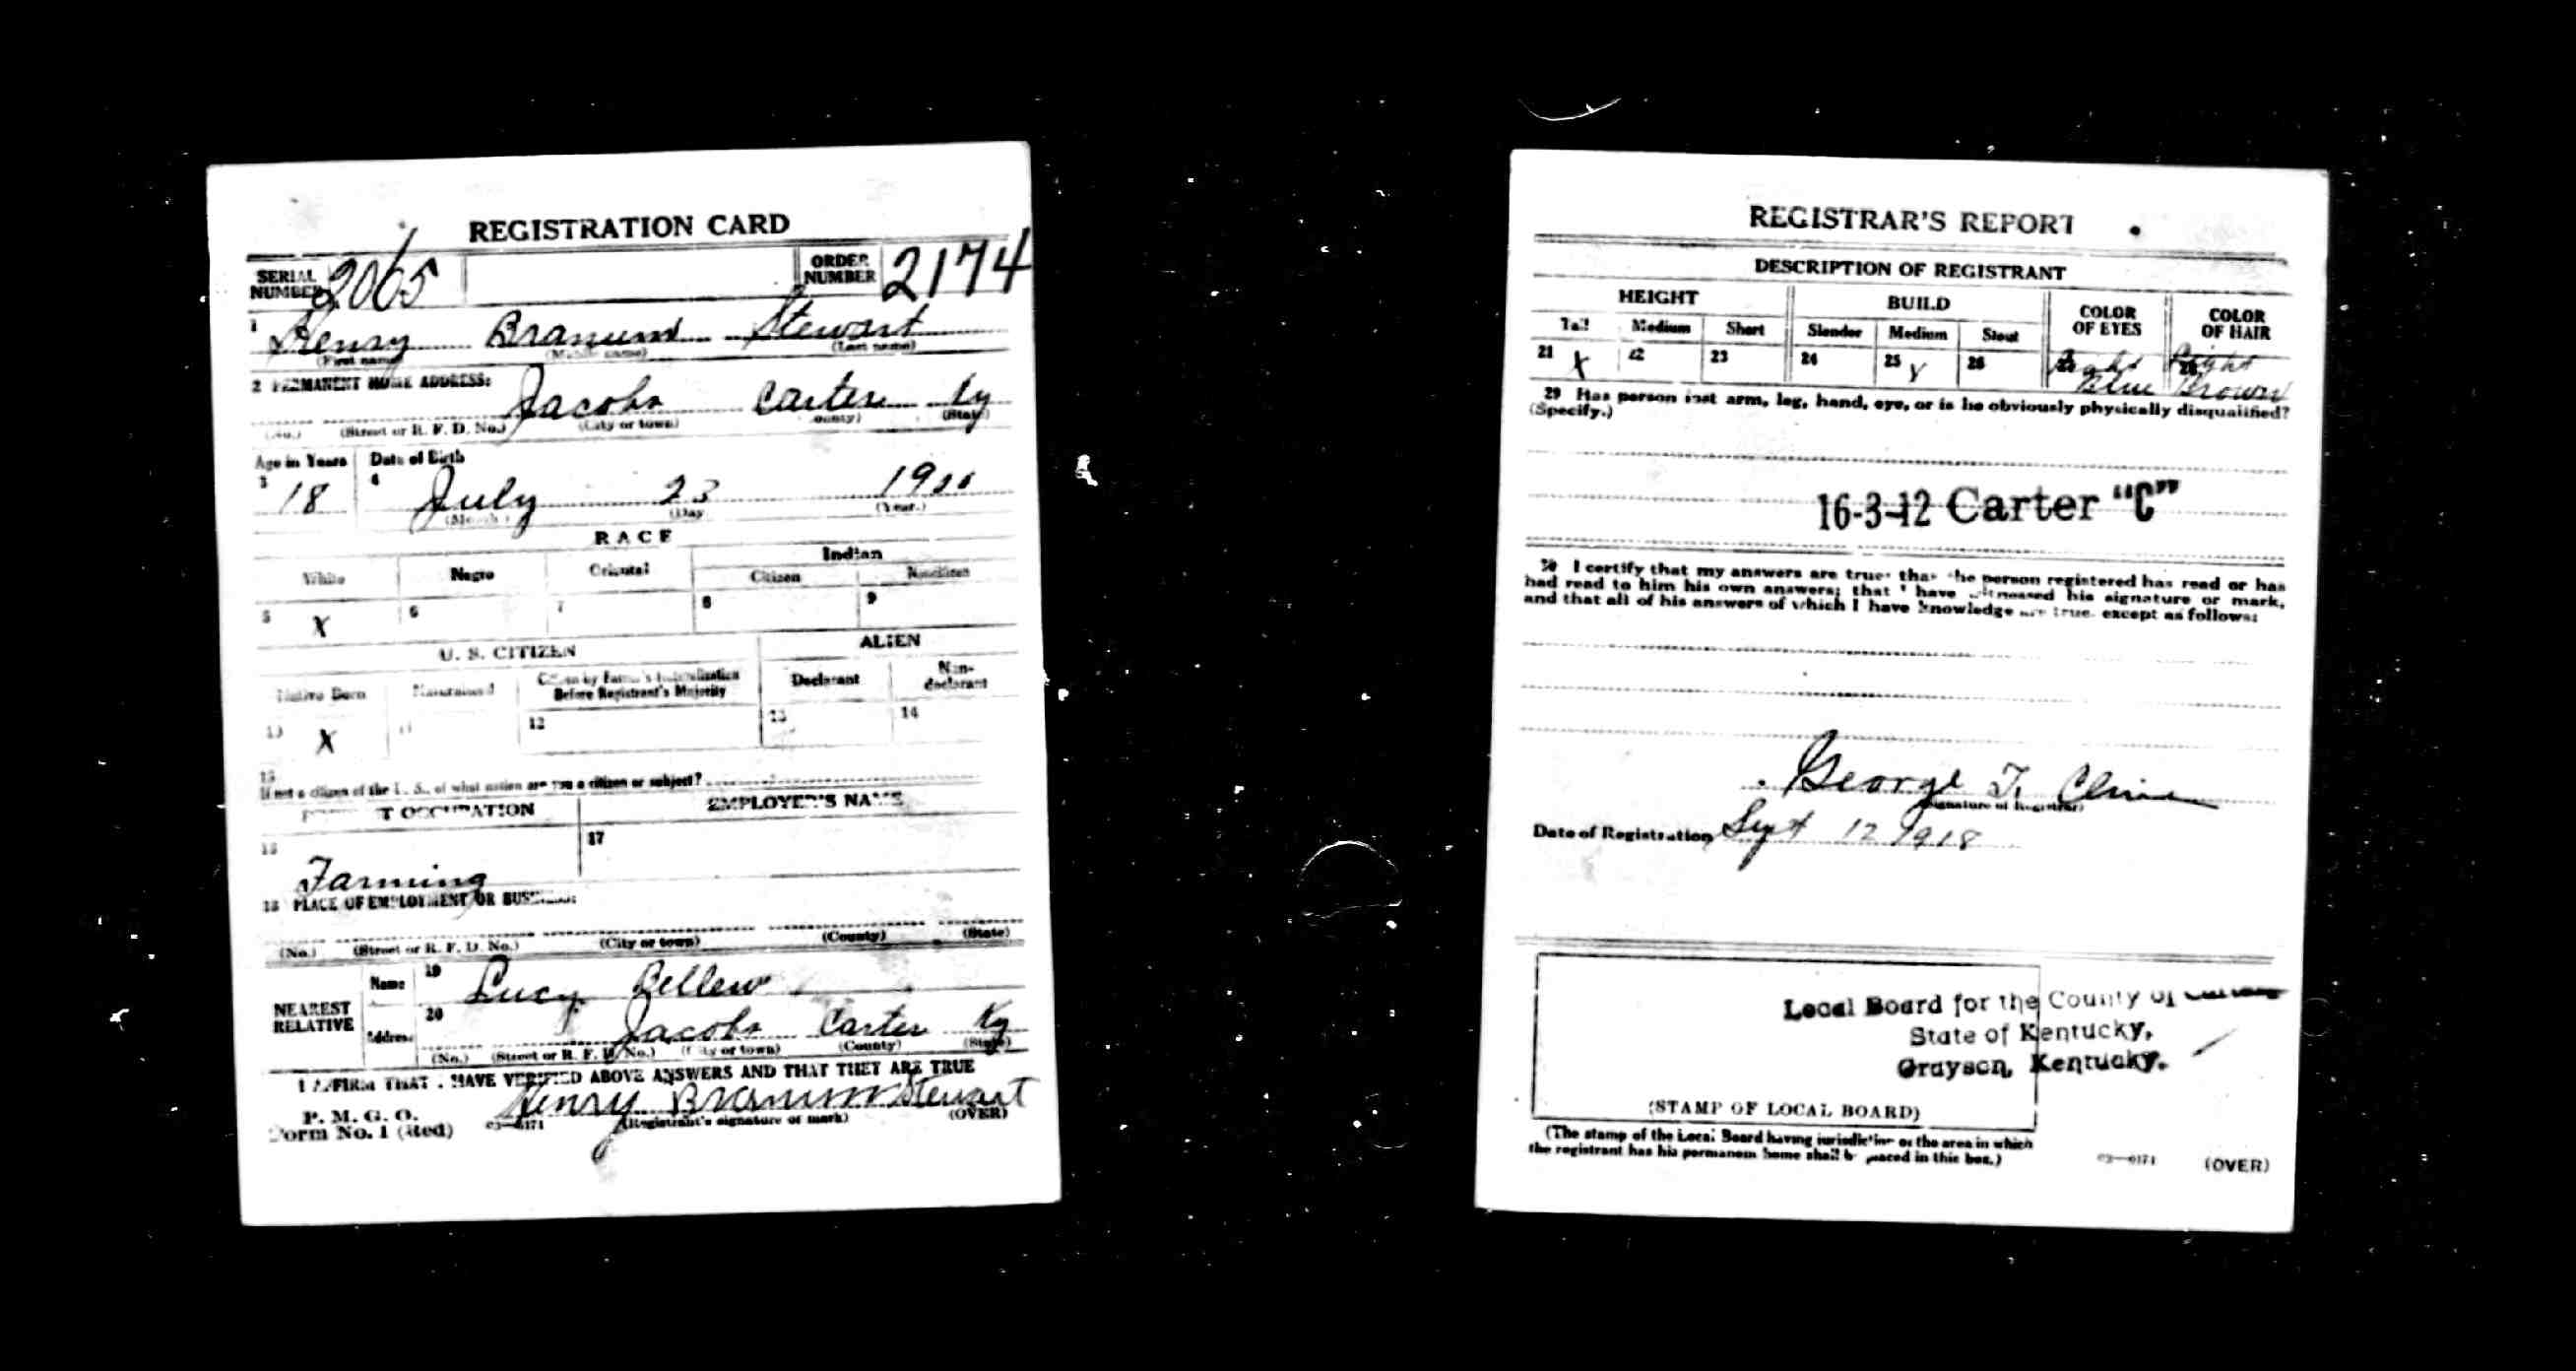 REGISTRATION CARD
SERIAL NUMBER 2065 ORDER NUMBER 2174
1 Henry Branum Stewart
(First name) (Middle name) (Last name)
2 PERMANENT HOME ADDRESS:
Jacobs Carter Ky
(No.) (Street or R. F. D. No.) (City or town) (County) (State)
Age in Years Date of Birth
3 18 4 July 23 1900
(Month) (Day) (Year.)
RACE
White Negro Oriental Indian
Citizen Noncitizen
5 X 6 7 8 9
U. S. CITIZEN ALIEN
Native Born Naturalized Citizen by Father's Naturalization Before Registrant's Majority Declarant Non-declarant
10 X 11 12 13 14
15
If not a citizen of the U. S., of what nation are you a citizen or subject?
PRESENT OCCUPATION EMPLOYER'S NAME
16 Farming 17
18 PLACE OF EMPLOYMENT OR BUSINESS:
(No.) (Street or R. F. D. No.) (City or town) (County) (State)
NEAREST RELATIVE Name 19 Lucy Bellew
Address 20 Jacobs Carter Ky
(No.) (Street or R. F. D. No.) (City or town) (County) (State)
I AFFIRM THAT I HAVE VERIFIED ABOVE ANSWERS AND THAT THEY ARE TRUE
P. M. G. O.
Form No. 1 (Red) Henry Branum Stewart
03—6171 (Registrant's signature or mark) (OVER)
REGISTRAR'S REPORT
DESCRIPTION OF REGISTRANT
HEIGHT BUILD COLOR OF EYES COLOR OF HAIR
Tall Medium Short Slender Medium Stout
21 X 22 23 24 25 X 26 27 Light Blue 28 Light Brown
29 Has person lost arm, leg, hand, eye, or is he obviously physically disqualified?
(Specify.)
16-3-12 Carter "C"
30 I certify that my answers are true; that the person registered has read or has
had read to him his own answers; that I have witnessed his signature or mark,
and that all of his answers of which I have knowledge are true, except as follows:
George T. Cline
(Signature of Registrar)
Date of Registration Sept 12 1918
Local Board for the County of Carter
State of Kentucky,
Grayson, Kentucky.
(STAMP OF LOCAL BOARD)
(The stamp of the Local Board having jurisdiction of the area in which
the registrant has his permanent home shall be placed in this box.)
03—6171 (OVER)